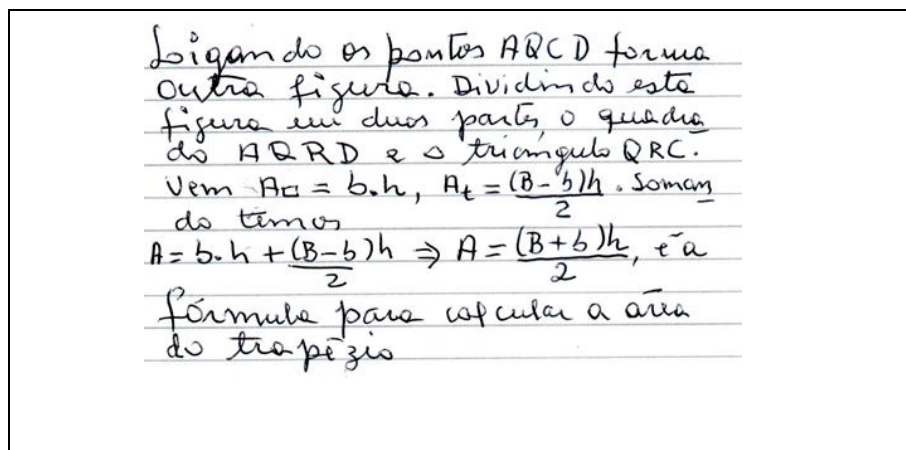 Ligando os pontos AQCD forma
outra figura. Dividindo esta
figura em duas partes, o quadra
do AQRD e o triângulo QRC.
Vem A□ = b.h, At = (B-b)h/2 . Soman
do temos
A = b.h + (B-b)h/2 ⇒ A = (B+b)h/2, é a
fórmula para calcular a área
do trapézio